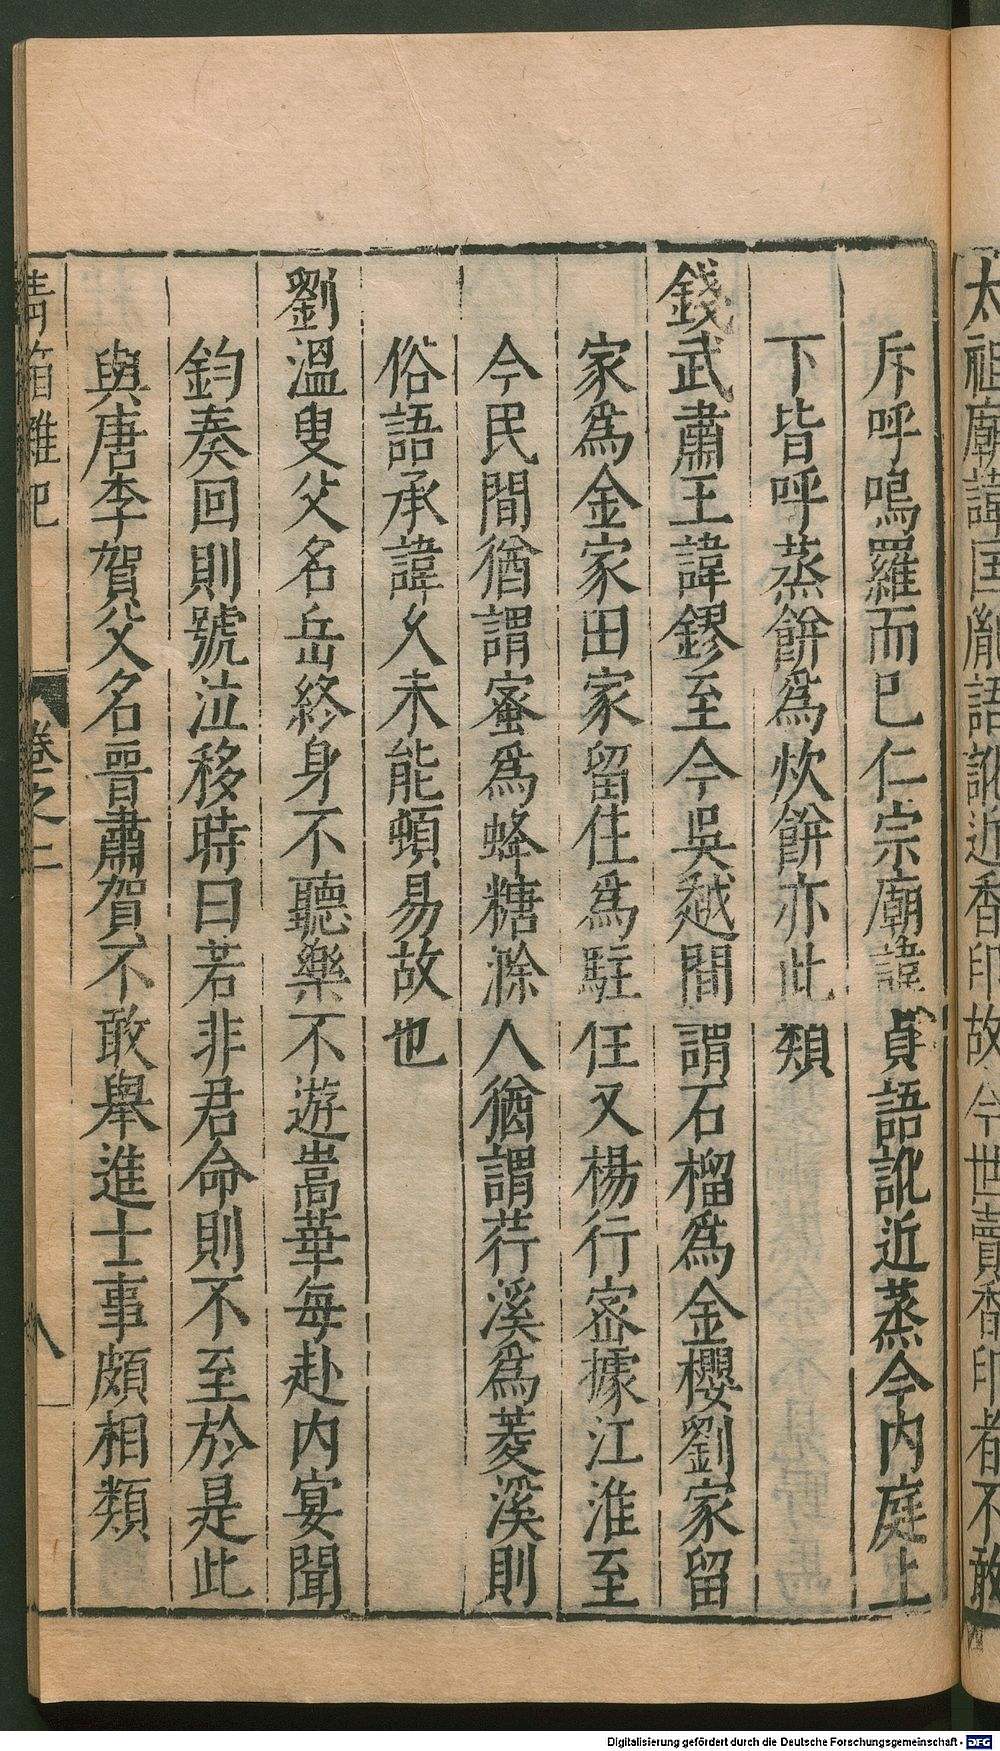 太祖廟諱匡胤語訛近香印故今世賣香印者不敢
斥呼鳴羅而已仁宗廟諱貞語訛近蒸今内庭上
下皆呼蒸餅爲炊餅亦此類
錢武肅王諱鏐至今吳越間謂石榴爲金櫻劉家留
家爲金家田家留住爲駐任又楊行密據江淮至
今民間猶謂蜜爲蜂糖滁人猶謂荇溪爲菱溪則
俗語承諱久未能頓易故也
劉溫叟父名岳終身不聽樂不遊嵩華每赴内宴聞
鈞奏回則號泣移時曰若非君命則不至於是此
與唐李賀父名晋肅賀不敢舉進士事頗相類
青箱雜記 卷之二 八
Digitalisierung gefördert durch die Deutsche Forschungsgemeinschaft - DFG